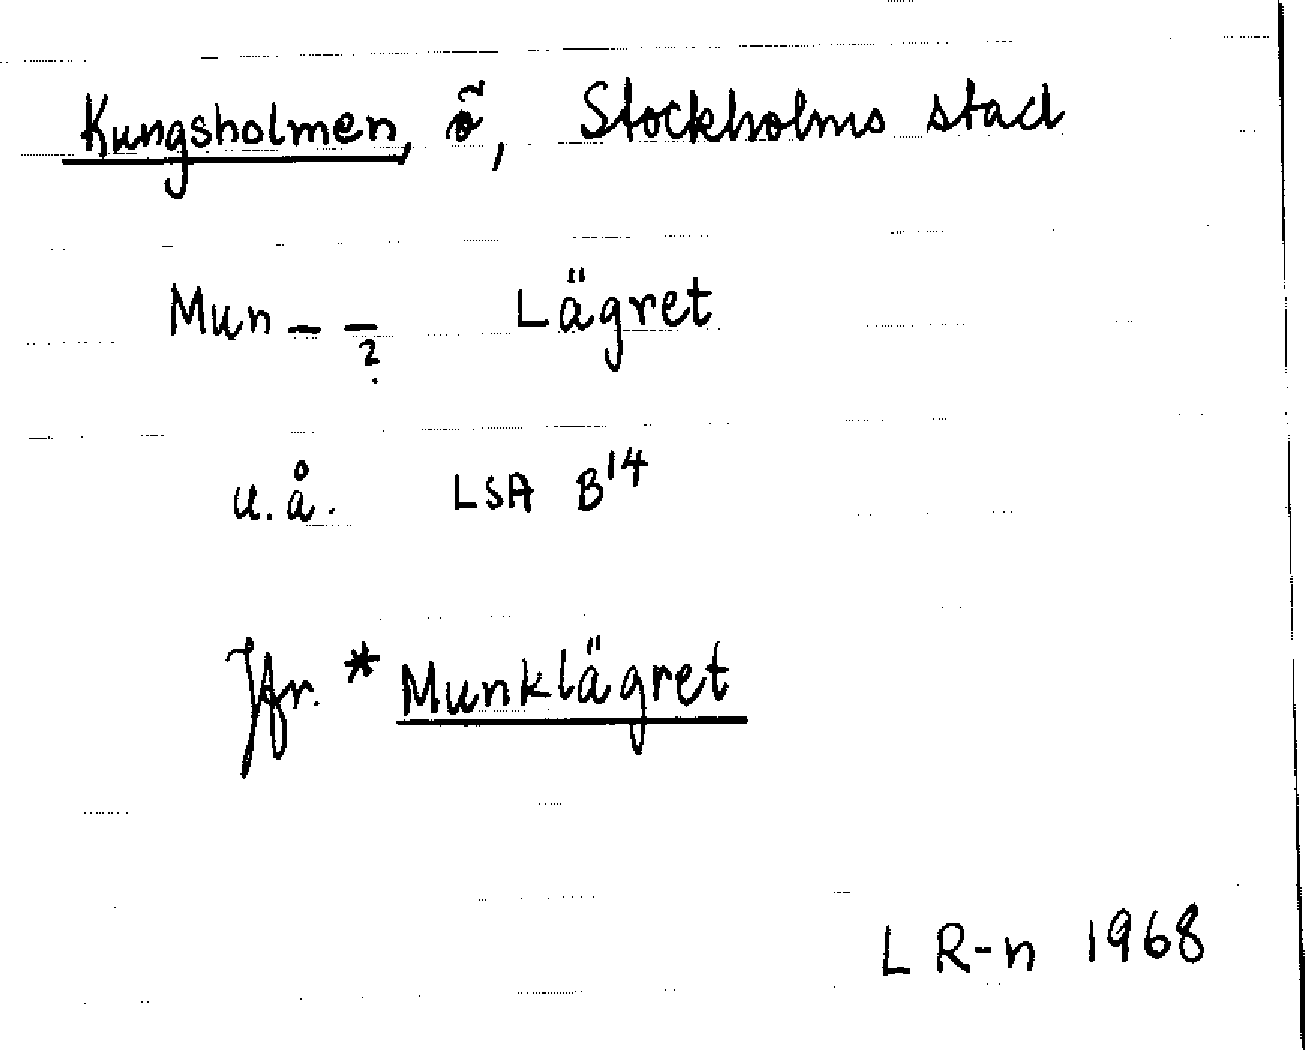 Kungsholmen, ö, Stockholms stad
Mun – – Lägret
?
u.å. LSA B14
Jfr. * Munklägret
L R-n 1968